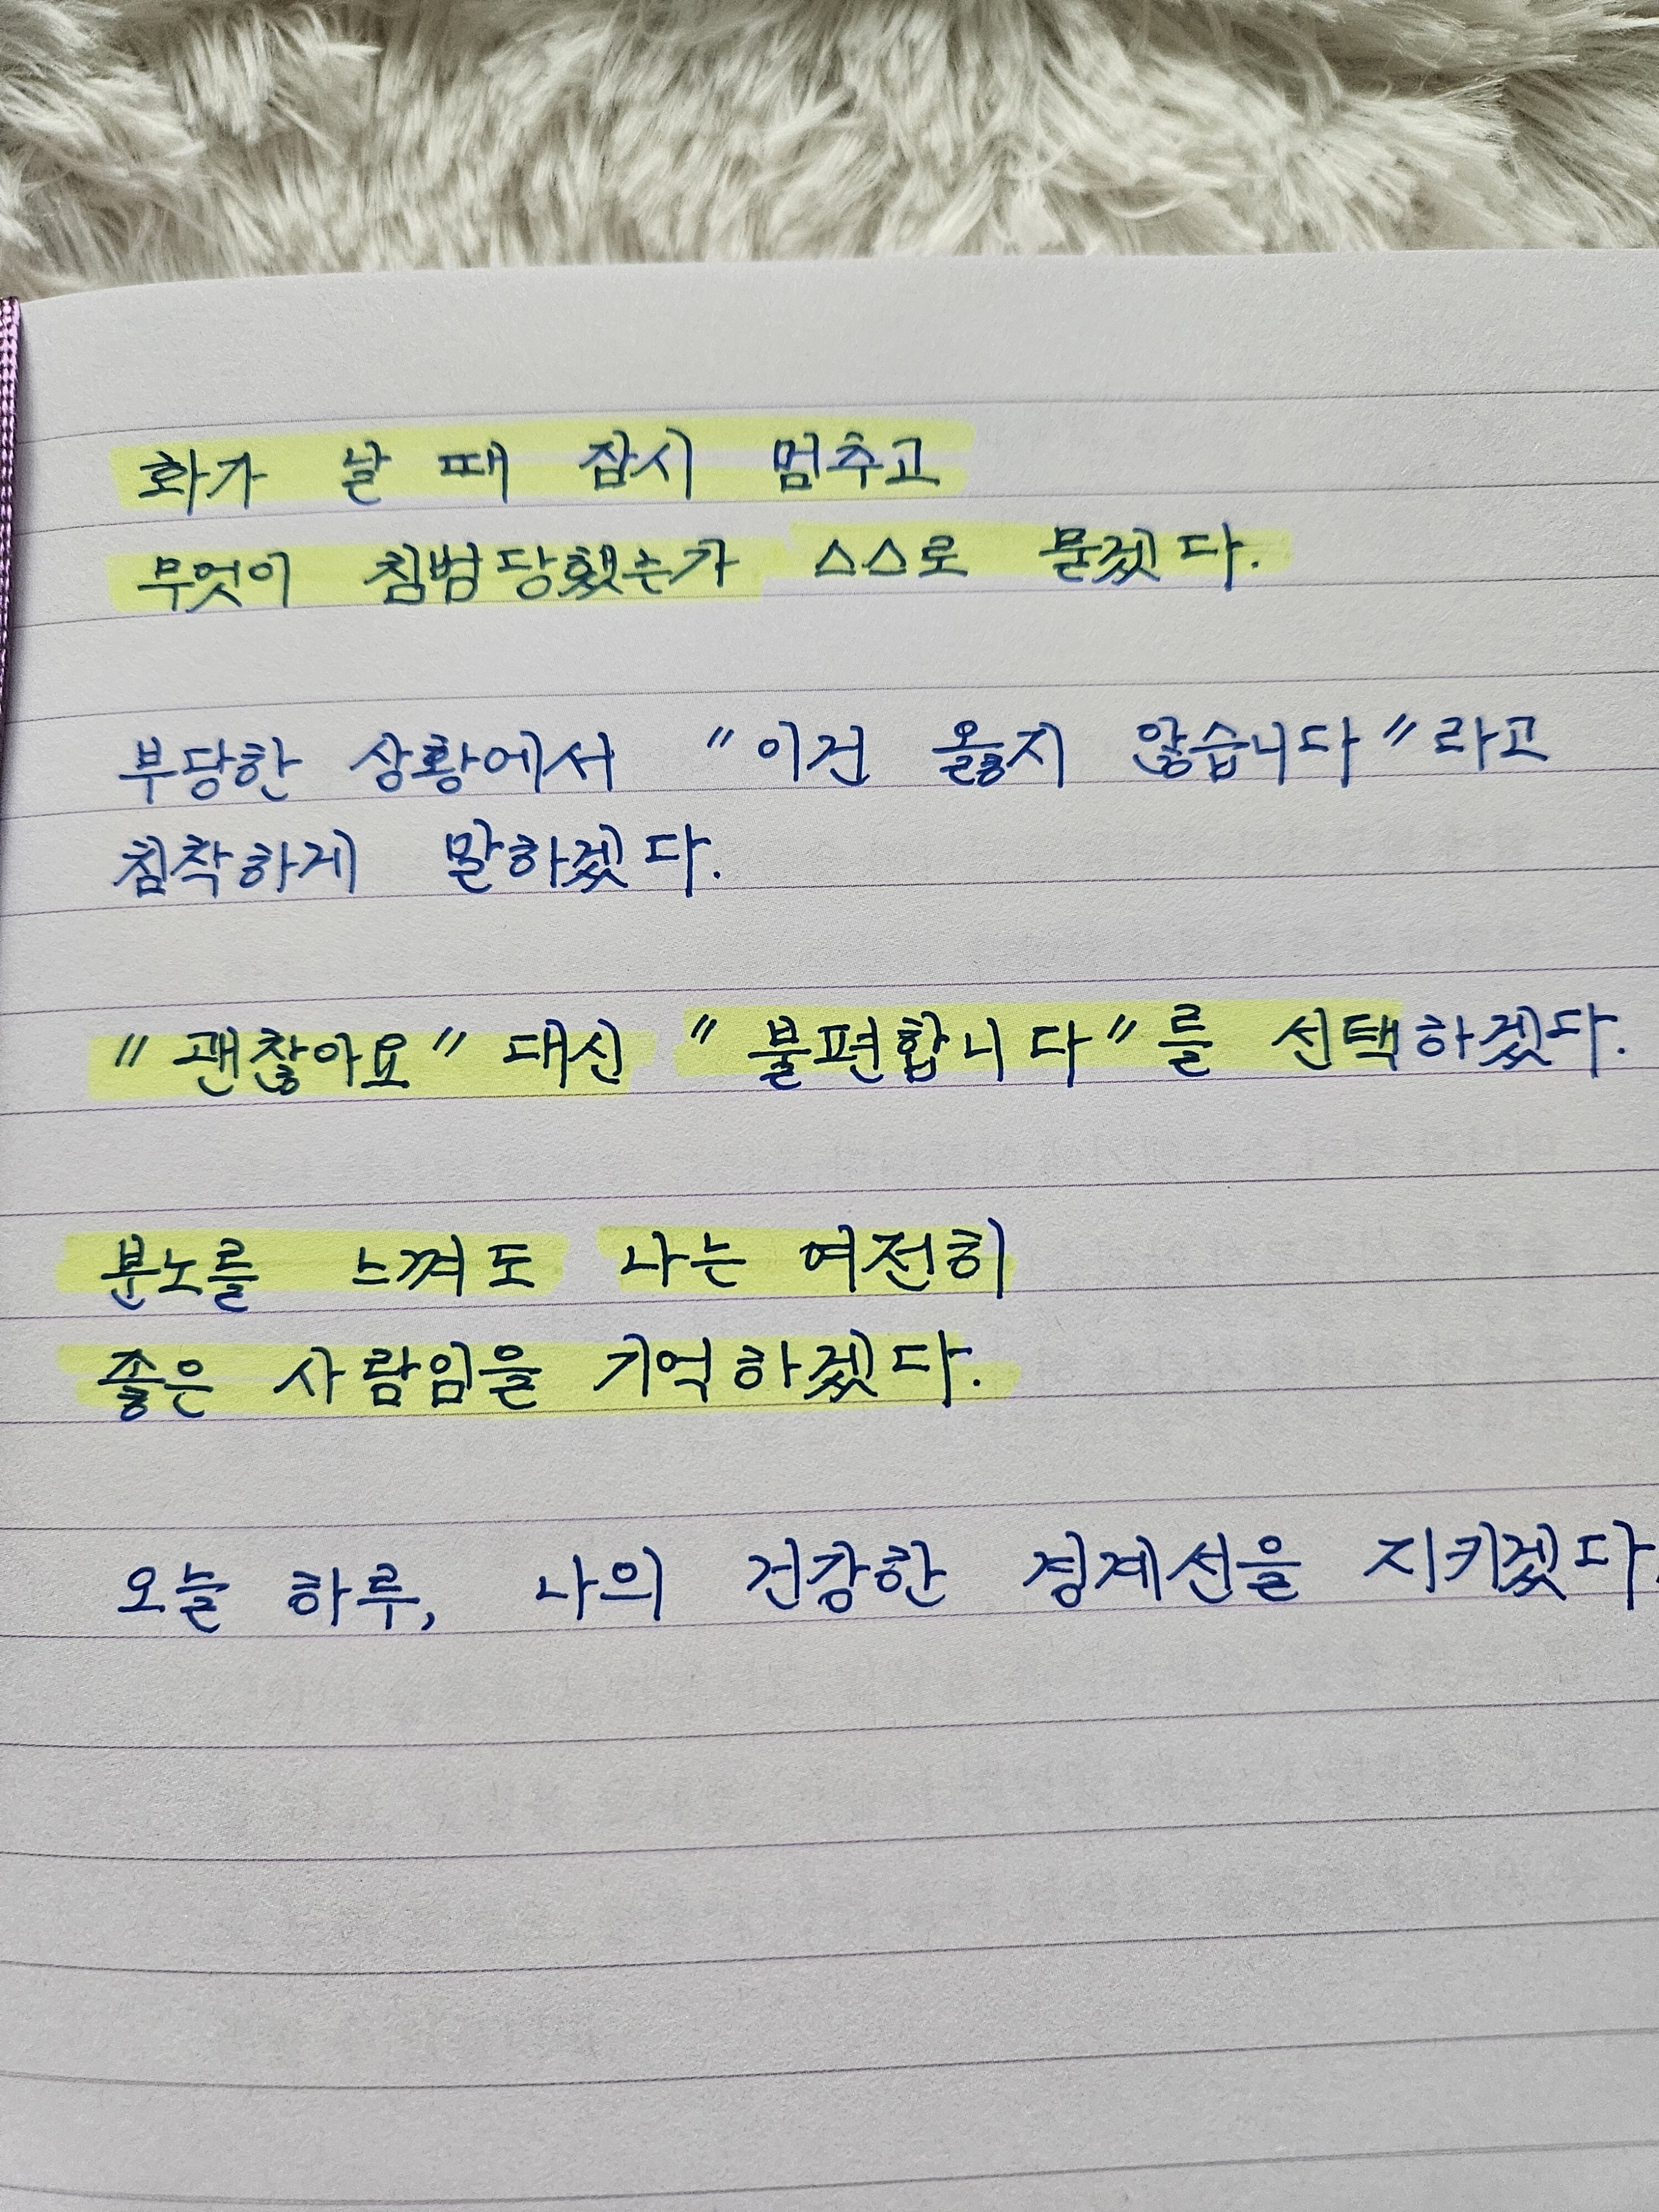 화가 날 때 잠시 멈추고
무엇이 침범당했는가 스스로 묻겠다.
부당한 상황에서 "이건 옳지 않습니다"라고
침착하게 말하겠다.
"괜찮아요" 대신 "불편합니다"를 선택하겠다.
분노를 느껴도 나는 여전히
좋은 사람임을 기억하겠다.
오늘 하루, 나의 건강한 경계선을 지키겠다.